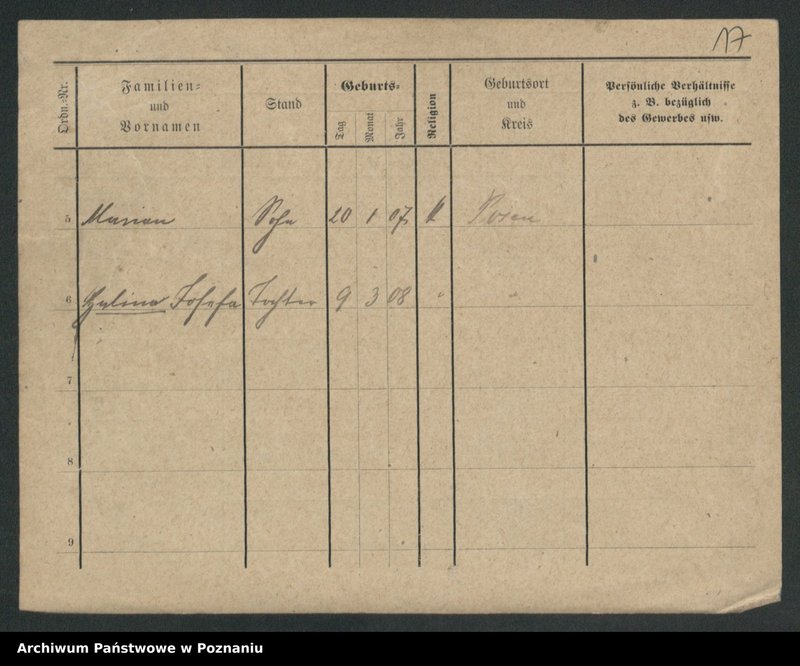 17
Ordn.=Nr.
Familien=
und
Vornamen
Stand
Geburts=
Tag
Monat
Jahr
Religion
Geburtsort
und
Kreis
Persönliche Verhältnisse
z. B. bezüglich
des Gewerbes usw.
5 Marian Sohn 20 1 07 k Posen
6 Halina Josefa Tochter 9 3 08 " "
7
8
9
Archiwum Państwowe w Poznaniu